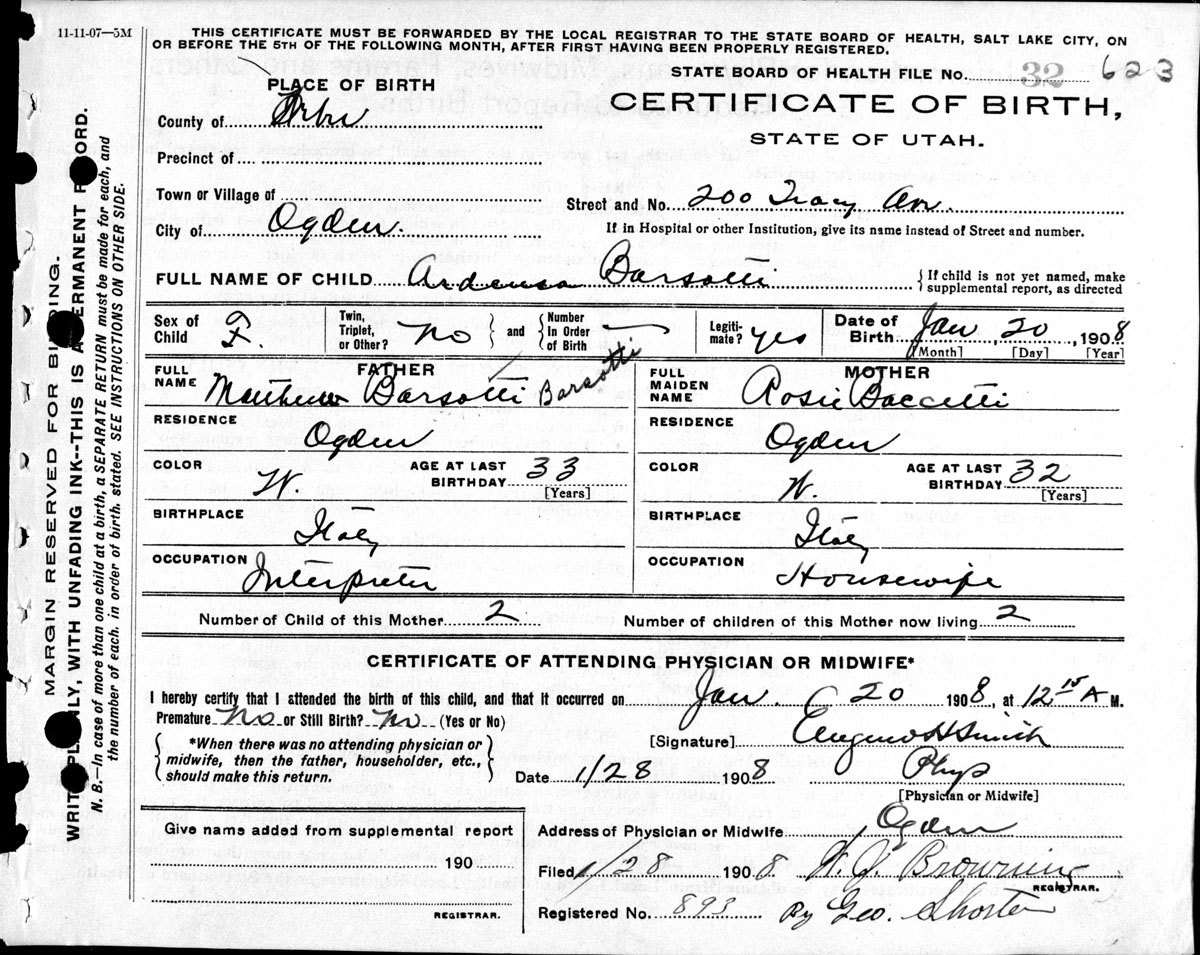 11-11-07—5M
THIS CERTIFICATE MUST BE FORWARDED BY THE LOCAL REGISTRAR TO THE STATE BOARD OF HEALTH, SALT LAKE CITY, ON
OR BEFORE THE 5TH OF THE FOLLOWING MONTH, AFTER FIRST HAVING BEEN PROPERLY REGISTERED.
STATE BOARD OF HEALTH FILE No. 32 623
PLACE OF BIRTH
CERTIFICATE OF BIRTH,
STATE OF UTAH.
County of
Precinct of
Town or Village of
Street and No. 200 Tracy Ave.
City of Ogden.
If in Hospital or other Institution, give its name instead of Street and number.
FULL NAME OF CHILD Barsotti
{If child is not yet named, make
supplemental report, as directed
Sex of Child F.
Twin, Triplet, or Other? No } and { Number In Order of Birth —
Legiti-mate? yes
Date of Birth Jan 20, 1908
[Month] [Day] [Year]
FATHER
FULL NAME Barsotti Barsotti
RESIDENCE Ogden
COLOR W. AGE AT LAST BIRTHDAY 33
[Years]
BIRTHPLACE Italy
OCCUPATION Interpreter
MOTHER
FULL MAIDEN NAME Rosie Baccetti
RESIDENCE Ogden
COLOR W. AGE AT LAST BIRTHDAY 32
[Years]
BIRTHPLACE Italy
OCCUPATION Housewife
Number of Child of this Mother 2 Number of children of this Mother now living 2
CERTIFICATE OF ATTENDING PHYSICIAN OR MIDWIFE*
I hereby certify that I attended the birth of this child, and that it occurred on Jan. 20 1908, at 12 15 A M.
Premature No or Still Birth? No (Yes or No)
{*When there was no attending physician or
midwife, then the father, householder, etc.,
should make this return.}
[Signature] Eugene H Smith
Date 1/28 1908 Phys
[Physician or Midwife]
Give name added from supplemental report
190
REGISTRAR.
Address of Physician or Midwife Ogden
Filed 1/28 1908. W. J. Browning
REGISTRAR.
Registered No. 893 By Geo. Shorten
MARGIN RESERVED FOR BINDING.
WRITE PLAINLY, WITH UNFADING INK--THIS IS A PERMANENT RECORD.
N. B.—In case of more than one child at a birth, a SEPARATE RETURN must be made for each, and
the number of each, in order of birth, stated. SEE INSTRUCTIONS ON OTHER SIDE.